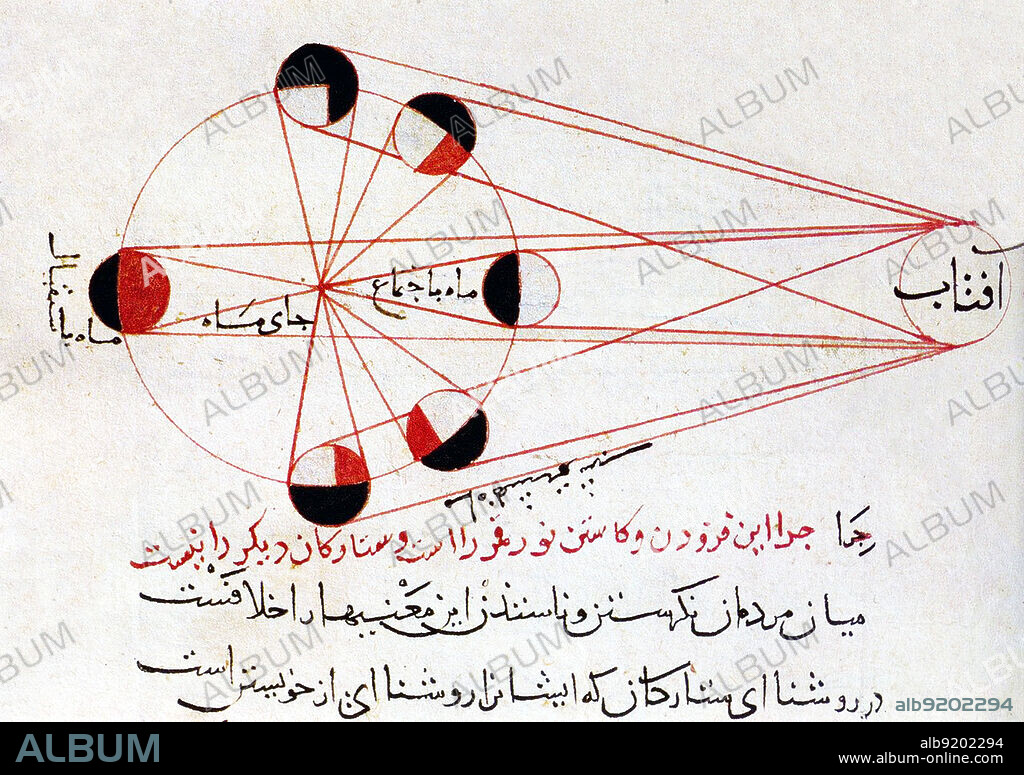 افتاب
ماه باجتماع
جای ماه
ماه با
چرا این فزودن و کاستن نور قمر را است و ستارکان دیکر را نیست
میان مردمان نکرستن و دانستن این معنیها را خلافست
در روشنا ای ستارکان که ایشانرا روشنا ای از خویشتن است
ALBUM
alb9202294
alb9202294
www.album-online.com